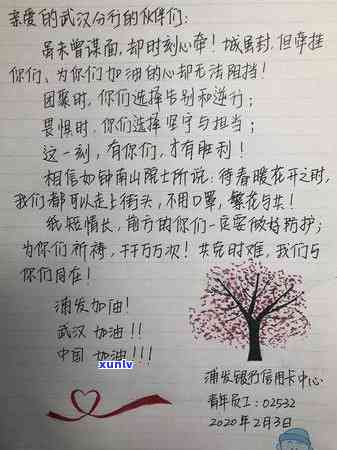 亲爱的武汉分行的伙伴们：
虽未曾谋面，却时刻心牵！城虽封，但牵挂
你们、为你们加油的心却无法阻挡！
团聚时，你们选择告别和逆行；
畏惧时，你们选择坚守与担当；
这一刻，有你们，才有胜利！
相信如钟南山院士所说：待春暖花开之时，
我们都可以走上街头，不用口罩，繁花与共！
纸短情长，前方的你们一定要做好防护；
为你们祈祷，千千万万次！共克时难，我们与
你们同在！
浦发加油！
武汉 加油！！
中国 加油！！！
xunlv
浦发银行信用卡中心
青年员工：02532
2020年2月3日